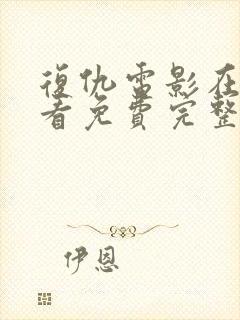 復仇電影在
看免費完整
伊恩